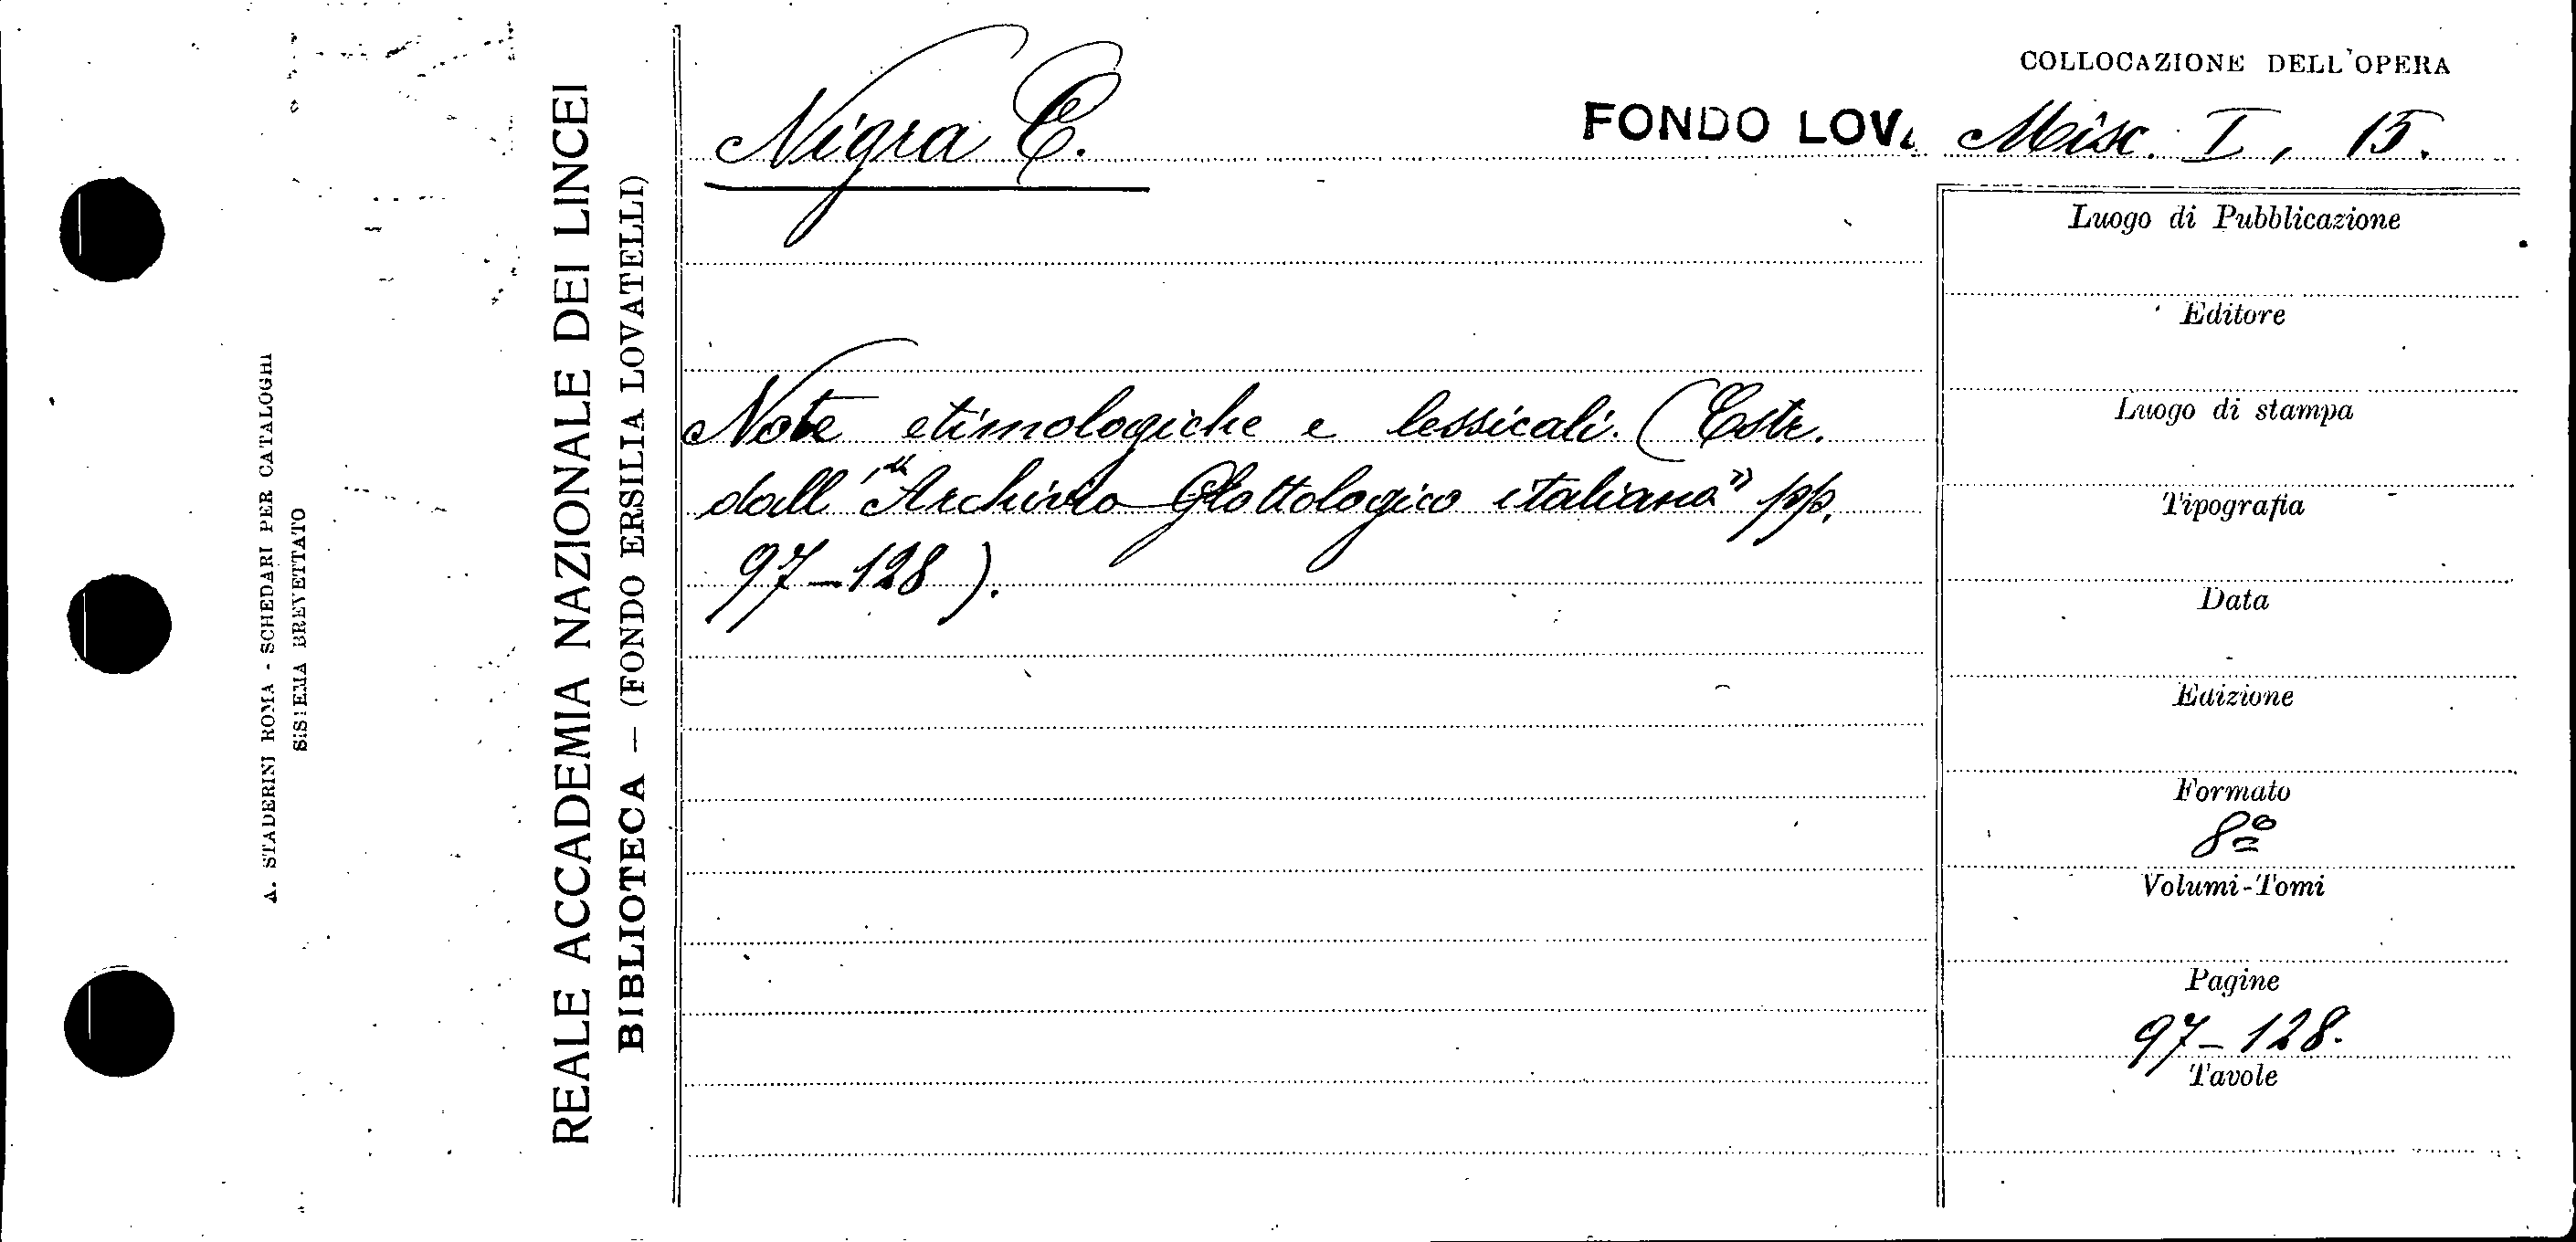 A. STADERINI ROMA - SCHEDARI PER CATALOGHI
SISTEMA BREVETTATO
REALE ACCADEMIA NAZIONALE DEI LINCEI
BIBLIOTECA — (FONDO ERSILIA LOVATELLI)
Nigra C.
Note etimologiche e lessicali. (Estr.
dall'"Archivio Glottologico italiano" pp.
97-128).
COLLOCAZIONE DELL'OPERA
FONDO LOV. Misc. I, 15.
Luogo di Pubblicazione
Editore
Luogo di stampa
Tipografia
Data
Edizione
Formato
8º
Volumi-Tomi
Pagine
97-128.
Tavole